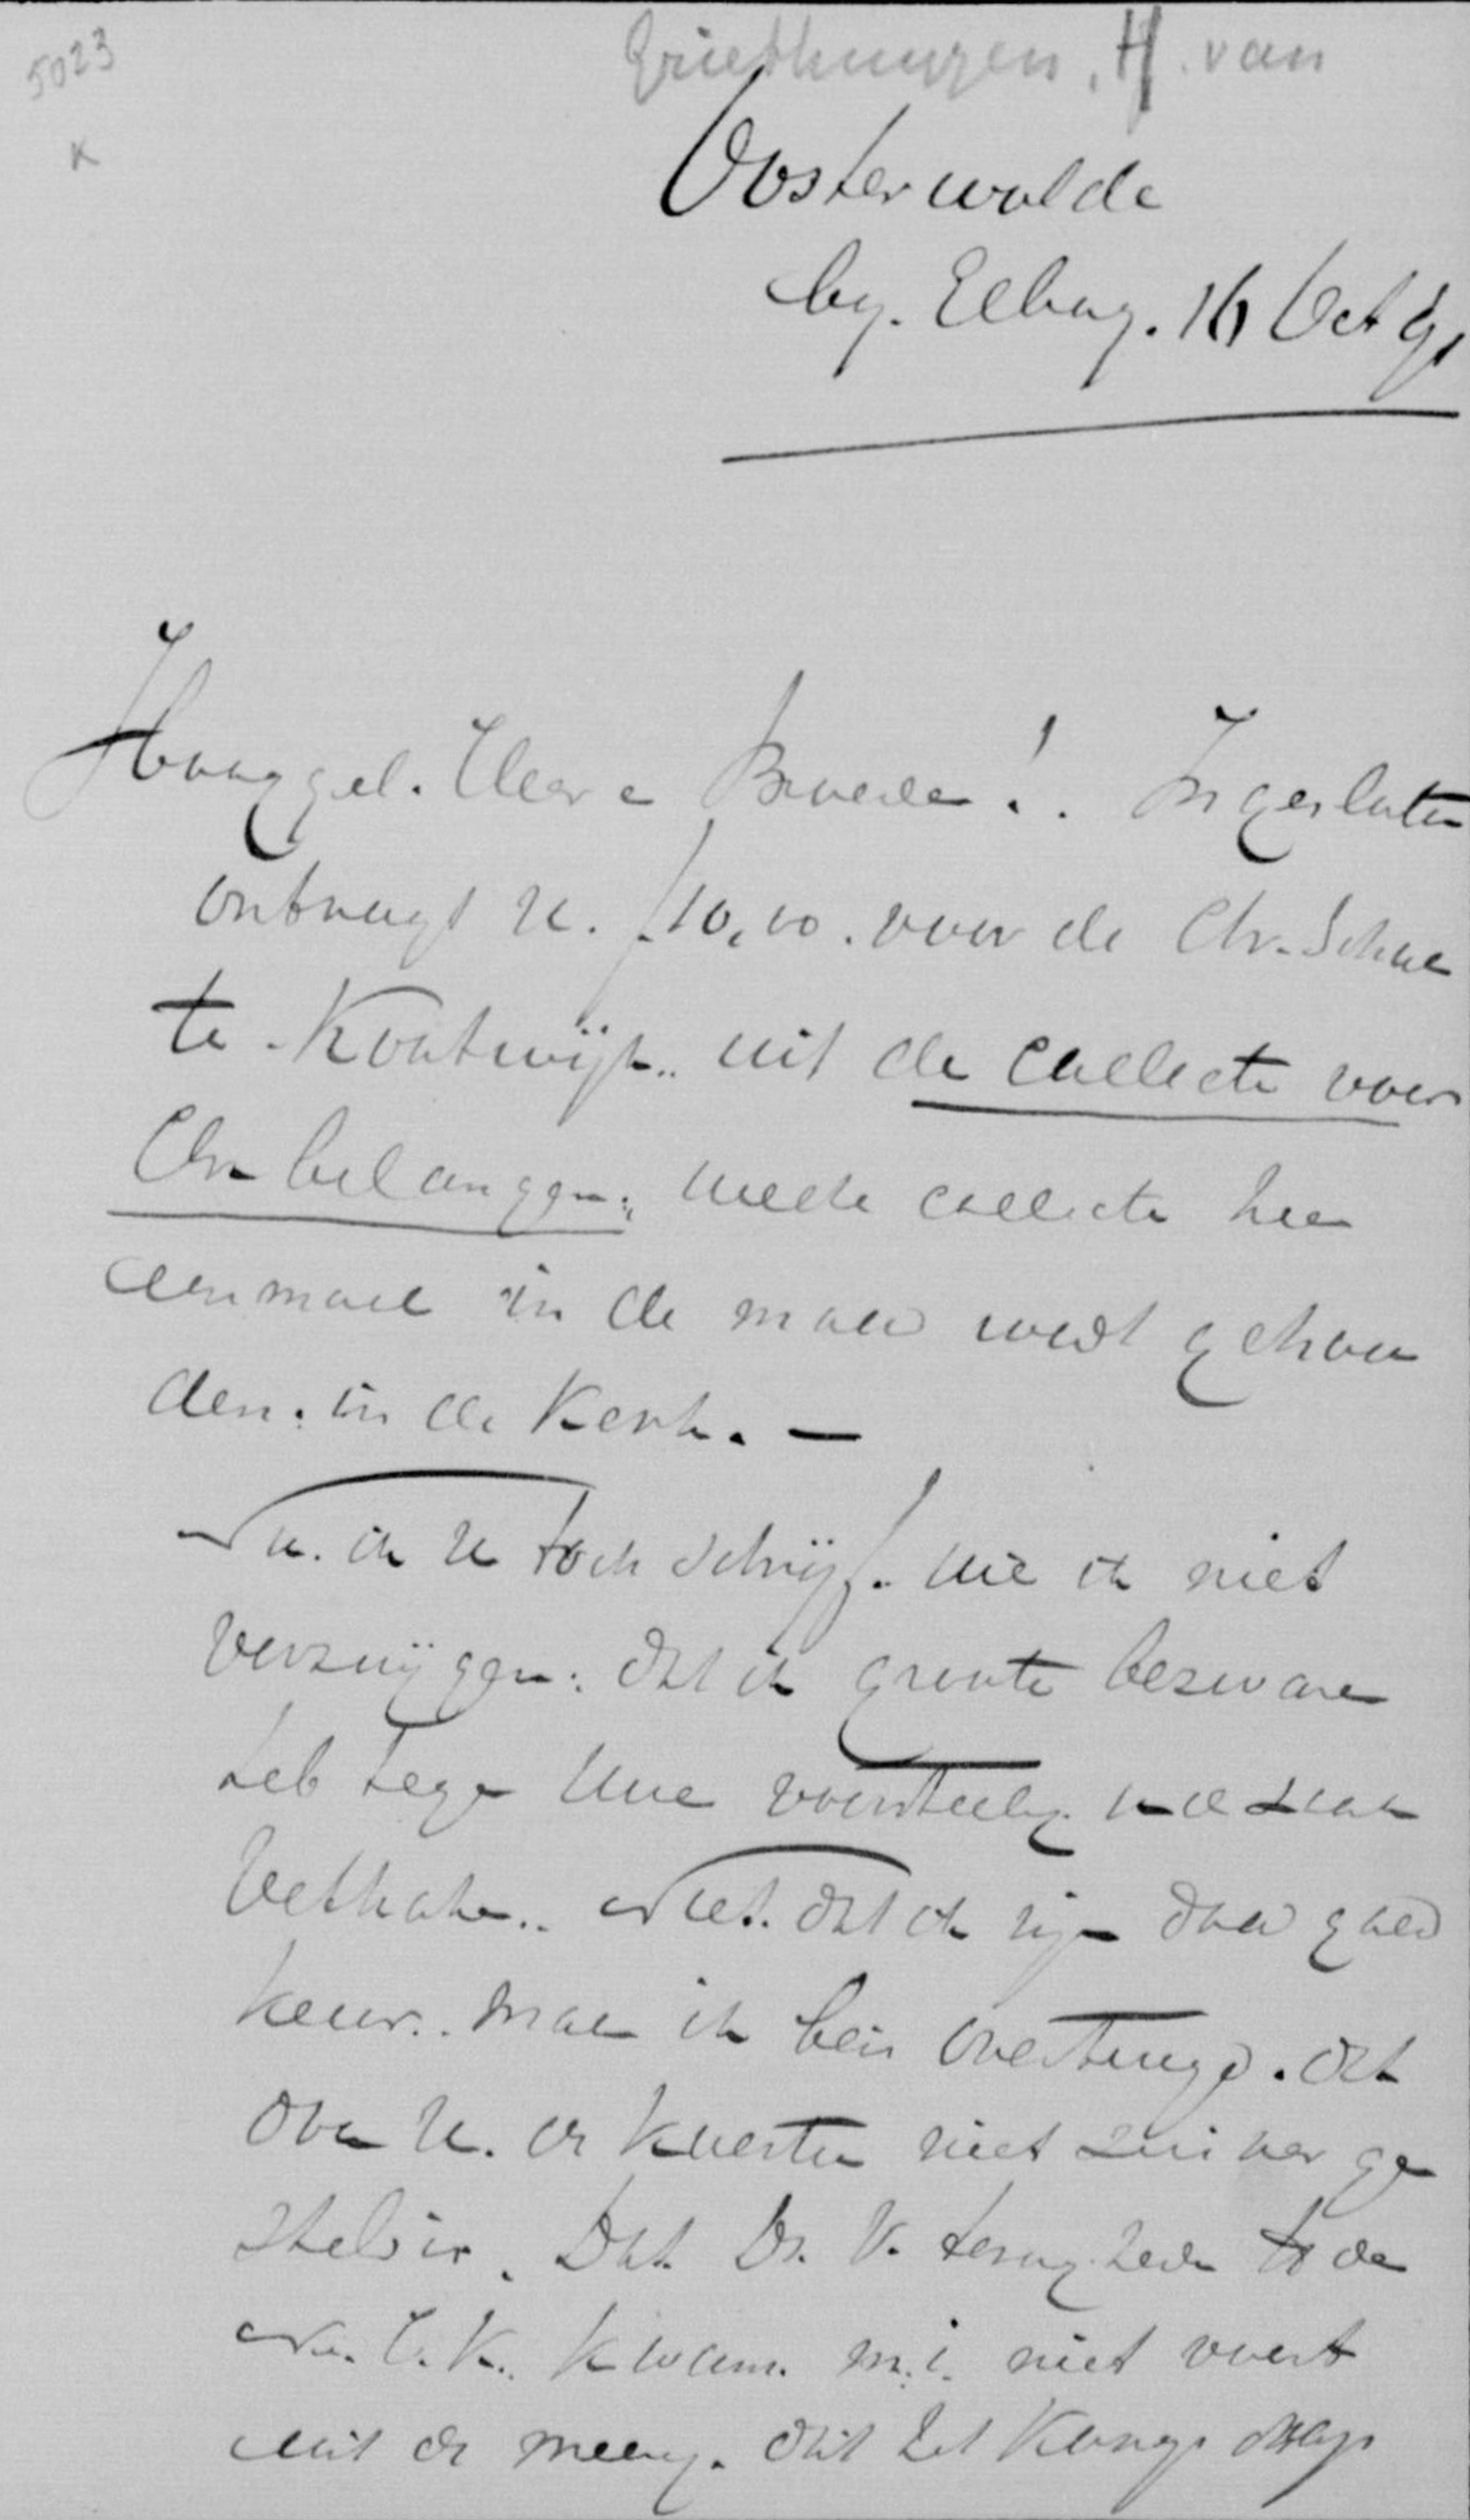 5023
K
Griethuyzen, H. van
Oosterwolde
by. Elburg. 16 Oct 91
Hooggel. Heer e Broeder! Ingesloten
ontvangt U. f 10,00. voor de Chr. School
te Kootwijk.. uit de collecte voor
Chr belangen; welke collecte hier
eenmaal in de maand wordt gehou
den. in de Kerk. —
Nu. ik U toch schrijf. wil ik niet
verzwijgen: dat ik groote bezwaren
heb tegen Uwe voorstelling
Vethake.. Niet. dat ik zijn daad goed
keur.. maar ik ben overtuigd. dat
door U. de kwestie niet zuiver ge
steld is. Dat Ds. V. terug tot de
N. H. K. kwam. m.i. niet voort
uit de meening. dat het Konings